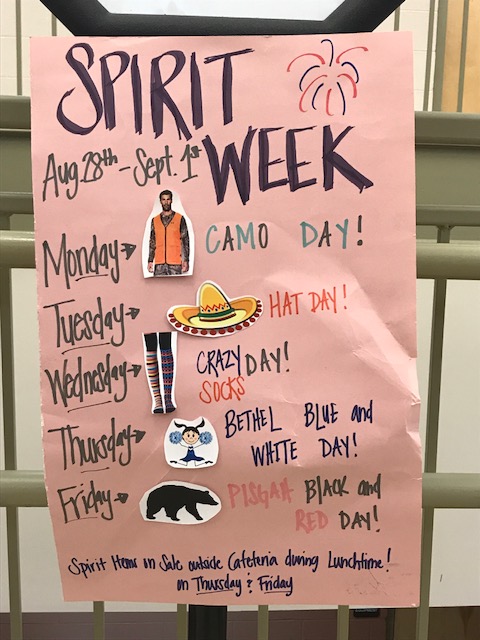 SPIRIT
Aug 28th - Sept. 1st WEEK
Monday → CAMO DAY!
Tuesday → HAT DAY!
Wednesday → CRAZY SOCKS DAY!
Thursday → BETHEL BLUE and
WHITE DAY!
Friday → PISGAH BLACK and
RED DAY!
Spirit Items on Sale outside Cafeteria during Lunchtime!
on Thursday & Friday